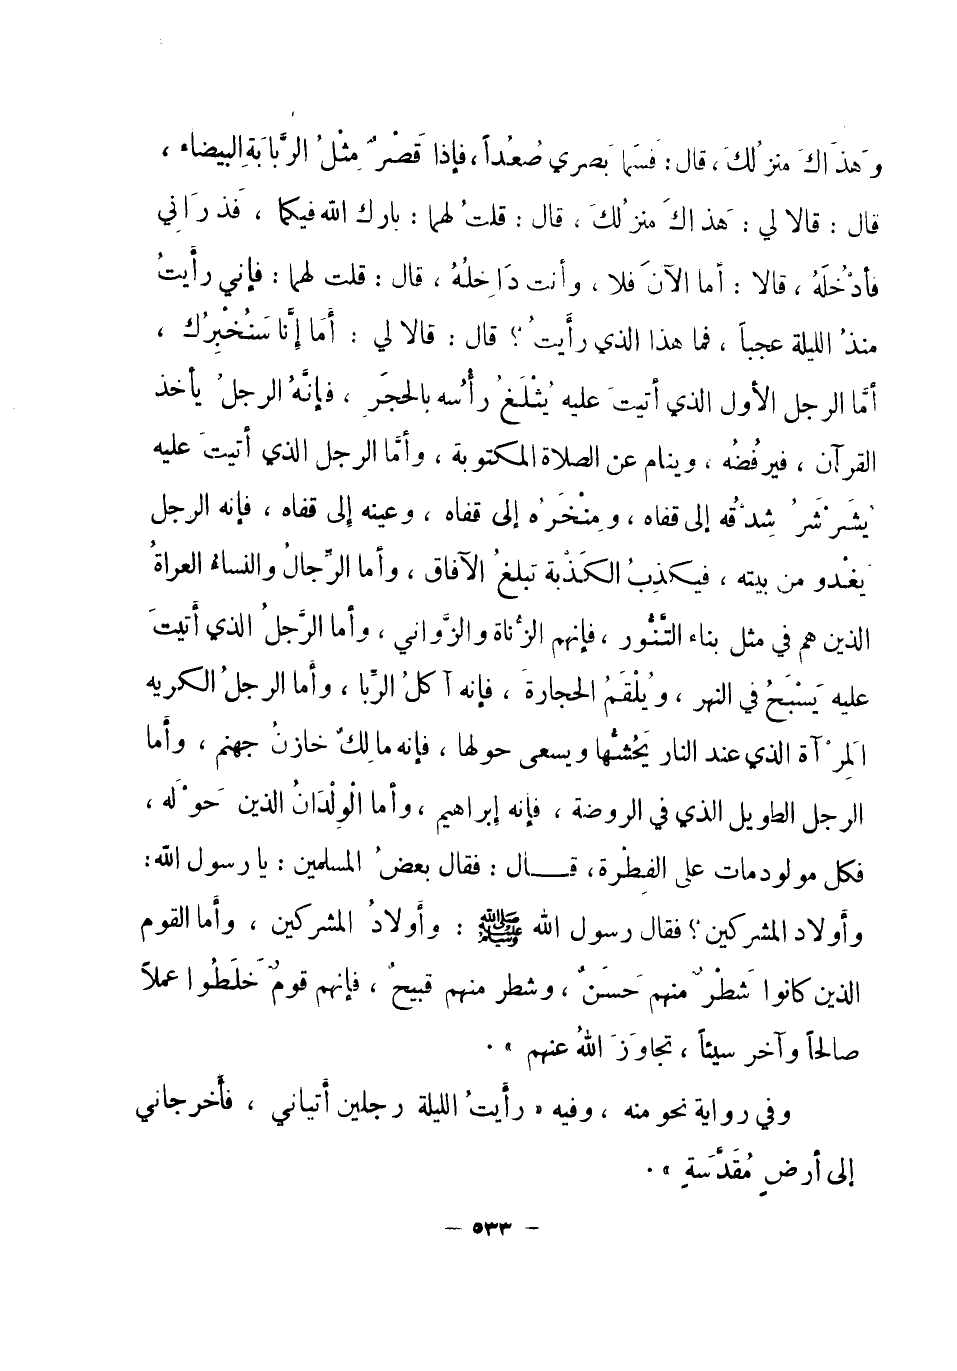 وَهَذَاكَ مَنزِلُكَ ، قال : فَسَمَا بَصَرِي صُعُداً ، فإذا قَصْرٌ مِثْلُ الرَّبَابَةِ البيضاء ،
قال : قالا لي : هَذاكَ مَنزِلُكَ ، قال : قلتُ لهما : بارك الله فيكما ، فَذَرَاني
فأدْخُلَهُ ، قالا : أما الآنَ فَلا ، وأنت دَاخِلُهُ ، قال : قلت لهما : فإني رأيتُ
منذُ الليلة عجباً ، فما هذا الذي رأيتُ ؟ قال : قالا لي : أمَا إنَّا سَنُخْبِرُك ،
أمَّا الرجل الأول الذي أتيتَ عليه يُثْلَغُ رأْسُه بالحجَرِ ، فإنَّهُ الرجلُ يأخذ
القرآن ، فيرفُضُه ، وينام عن الصلاة المكتوبة ، وأمَّا الرجل الذي أتيتَ عليه
يُشَرْشَرُ شِدْقُه إلى قفاه ، ومِنْخَرُه إلى قفاه ، وعينه إلى قفاه ، فإنه الرجل
يَغْدو من بيته ، فيكذِبُ الكَذْبة تبلغُ الآفاق ، وأما الرِّجالُ والنساءُ العراةُ
الذين هم في مثل بناء التَّنُّور ، فإنهم الزُّناة والزَّواني ، وأما الرَّجلُ الذي أتيتَ
عليه يَسْبَحُ في النهر ، ويُلْقَمُ الحجارةَ ، فإنه آكلُ الرِّبا ، وأما الرجلُ الكريه
المِرْآة الذي عند النار يَحُشُّها ويسعى حولها ، فإنه مالِكٌ خازنُ جهنم ، وأما
الرجل الطويل الذي في الروضة ، فإنه إبراهيم ، وأما الْوِلْدَانُ الذين حَوْلَه ،
فكل مولود مات على الفِطْرة ، قــــال : فقال بعضُ المسلمين : يا رسول الله :
وأولاد المشركين ؟ فقال رسول الله ﷺ : وأولادُ المشركين ، وأما القوم
الذين كانوا شَطْرٌ منهم حَسَنٌ ، وشطر منهم قبيحٌ ، فإنهم قومٌ خَلَطُوا عملاً
صالحاً وآخر سيئاً ، تجاوَزَ اللهُ عنهم » .
وفي رواية نحو منه ، وفيه « رأيتُ الليلة رجلين أتياني ، فأخرجاني
إلى أرضٍ مُقَدَّسَةٍ » .
— ٥٣٣ —